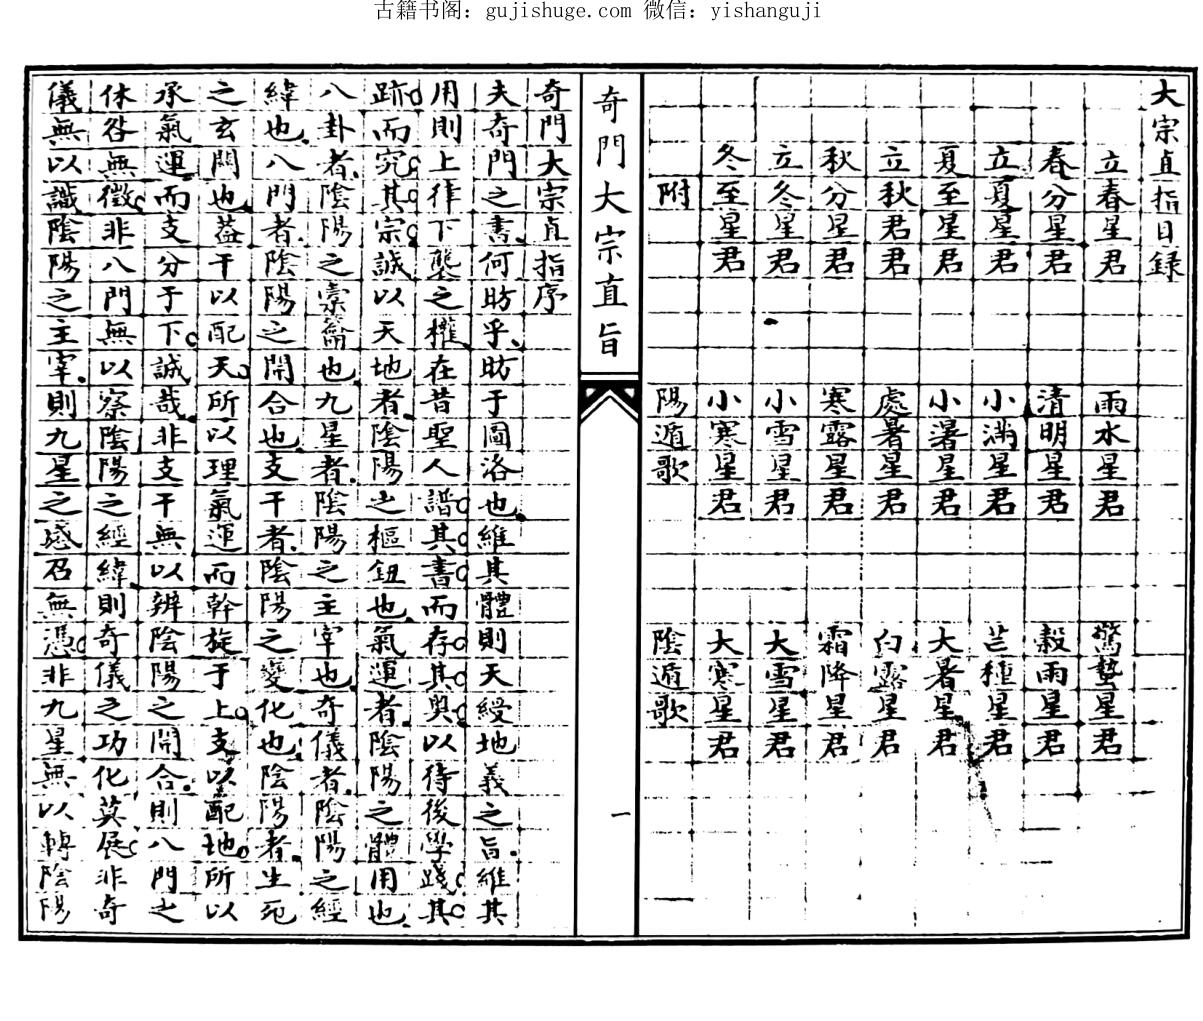 古籍书阁：gujishuge.com 微信：yishanguji
大宗直指目録
立春星君 雨水星君 驚蟄星君
春分星君 清明星君 穀雨星君
立夏星君 小滿星君 芒種星君
夏至星君 小暑星君 大暑星君
立秋君君 處暑星君 白露星君
秋分星君 寒露星君 霜降星君
立冬星君 小雪星君 大雪星君
冬至星君 小寒星君 大寒星君
附 陽遁歌 陰遁歌
奇門大宗直旨 一
奇門大宗直指序
夫奇門之書何昉乎昉于圖洛也維其體則天綬地義之旨維其
用則上律下襲之權在昔聖人譜其書而存其奥以待後學踐其
跡而究其宗誠以天地者陰陽之樞鈕也氣運者陰陽之體用也
八卦者陰陽之橐籥也九星者陰陽之主宰也奇儀者陰陽之經
緯也八門者陰陽之開合也支干者陰陽之變化也陰陽者生死
之玄関也葢干以配天所以理氣運而幹旋于上支以配地所以
承氣運而支分于下誠哉非支干無以辨陰陽之開合則八門之
休咎無徵非八門無以察陰陽之經緯則奇儀之功化莫展非奇
儀無以識陰陽之主宰則九星之感召無憑非九星無以轉陰陽